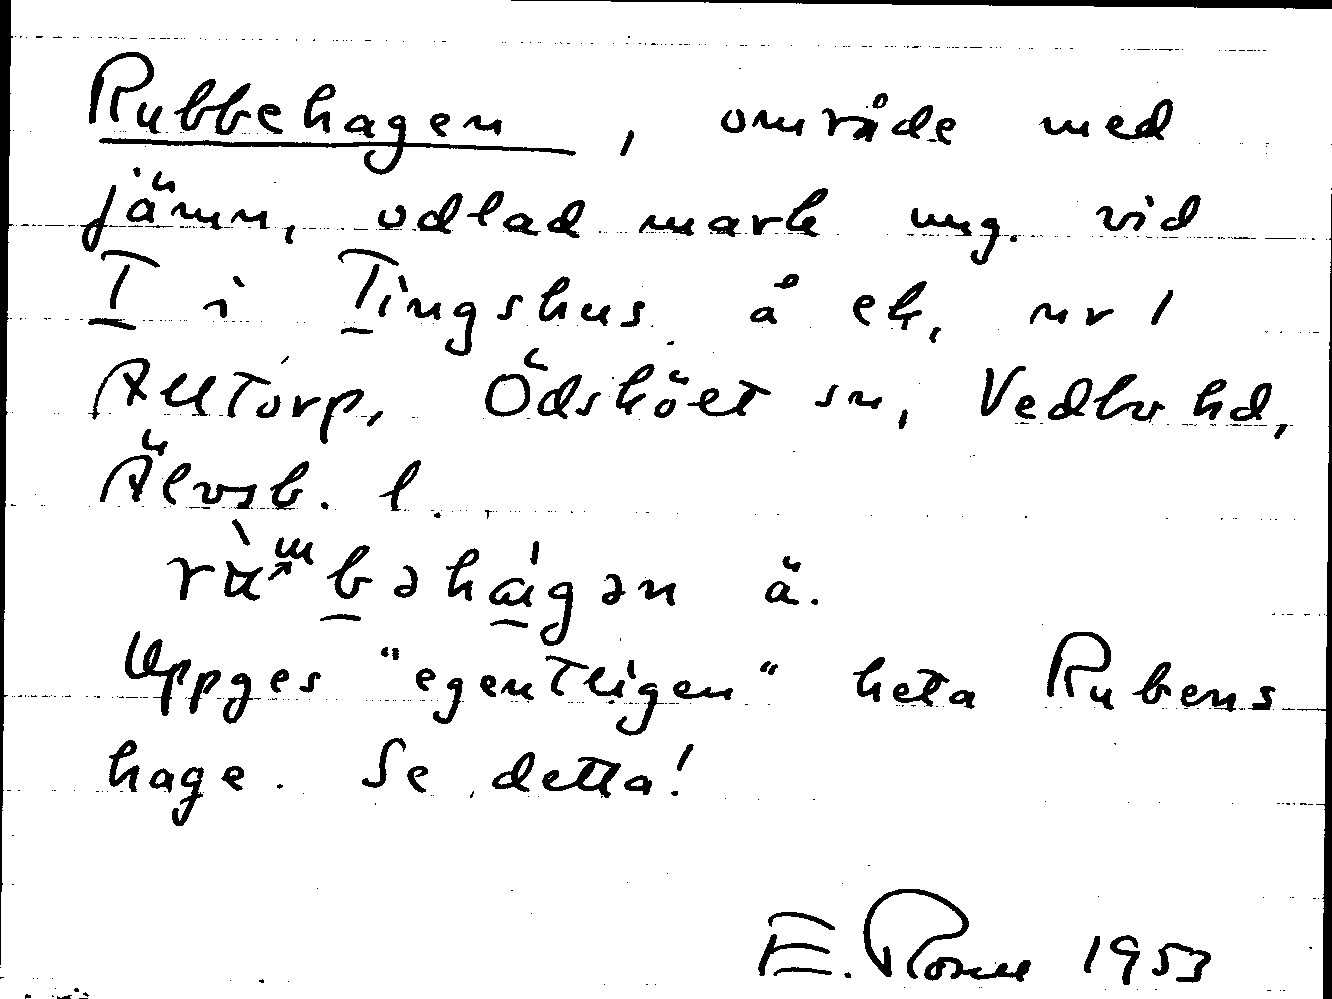 Rubbehagen, område med
jämn, odlad mark ung. vid
T i Tingshus å ek, nr 1
Alltorp, Ödsköelt sn, Vedbo hd,
Älvsb. l.
bəhágən ä.
Uppges "egentligen" heta Rubens
hage. Se detta!
E. 1953